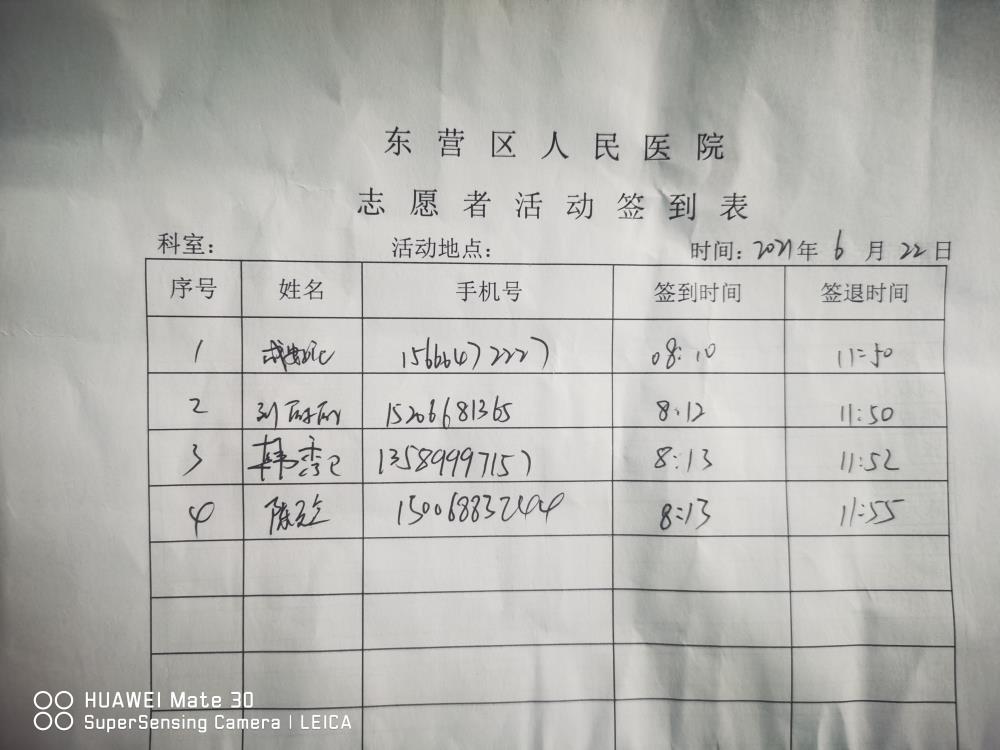 东营区人民医院
志愿者活动签到表
科室： 活动地点： 时间：2021年 6 月 22日
序号 姓名 手机号 签到时间 签退时间
1 15666472227 08:10 11:50
2 刘丽丽 15206681365 8:12 11:50
3 韩秀 13589997157 8:13 11:52
4 陈 15006883244 8:13 11:55
HUAWEI Mate 30
SuperSensing Camera | LEICA